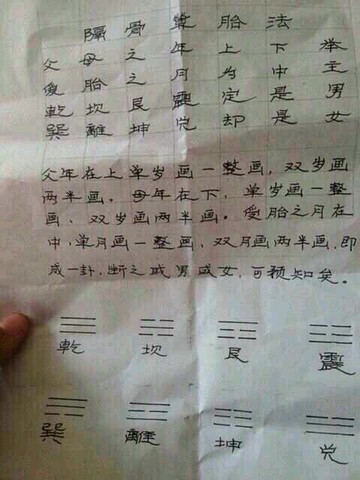 隔骨 胎法
父母之年上下举
受胎之月为中主
乾坎艮震定是男
巽離坤兑却是女
父年在上单岁画一整画，双岁画
两半画。母年在下，单岁画一整
画，双岁画两半画。受胎之月在
中，单月画一整画，双月画两半画，即
成一卦，断之或男或女，可预知矣。
乾 坎 艮 震
巽 離 坤 兑